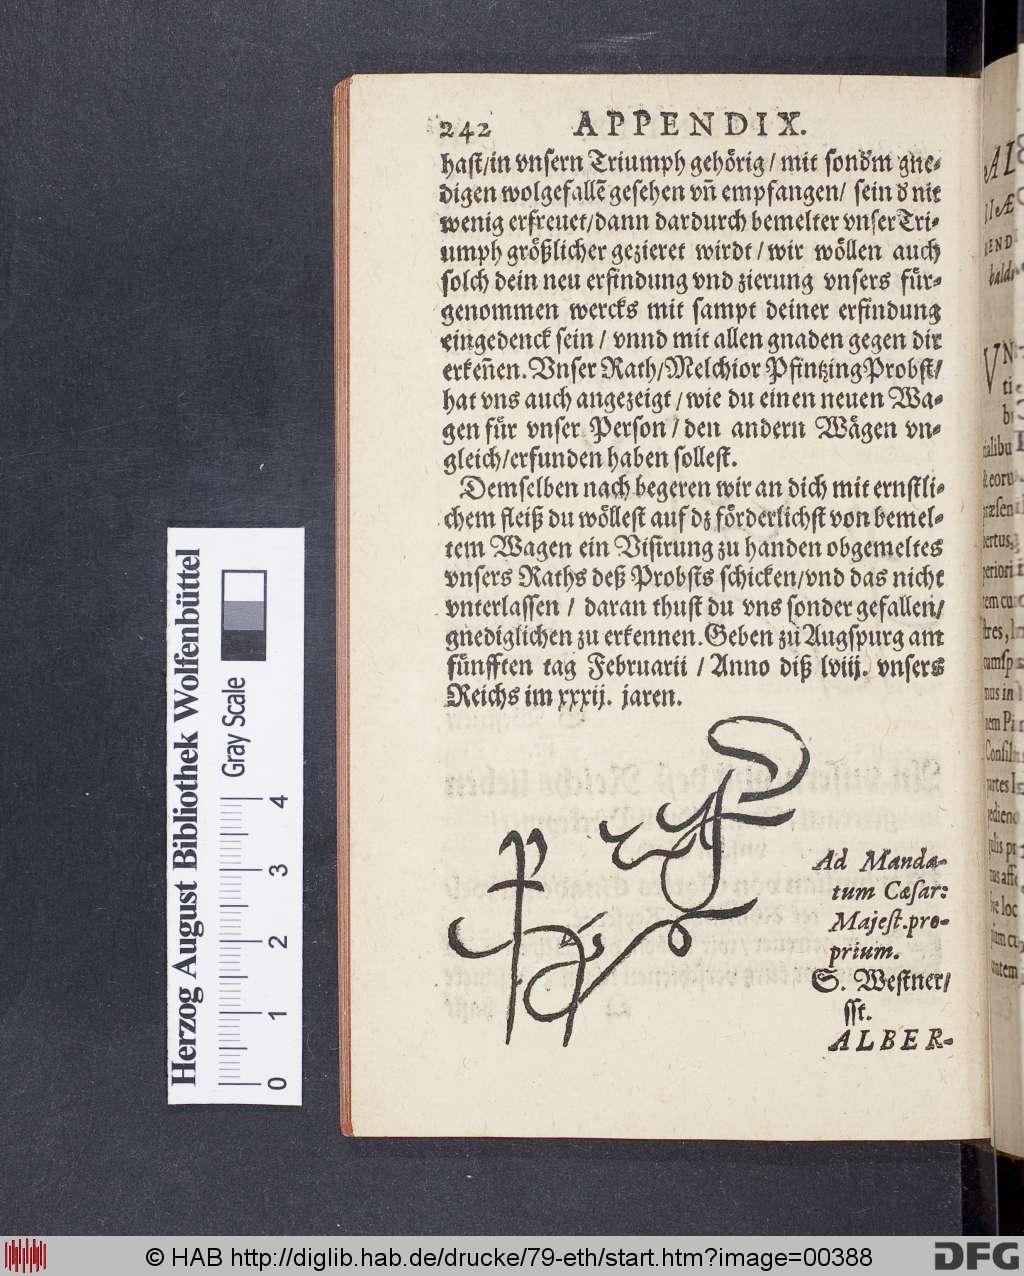 242 APPENDIX.
hast/in vnsern Triumph gehörig/ mit sonðm gne-
digen wolgefallē gesehen vñ empfangen/ sein ð nit
wenig erfreuet/dann dardurch bemelter vnser Tri-
umph größlicher gezieret wirdt/wir wöllen auch
solch dein neu erfindung vnd zierung vnsers für-
genommen wercks mit sampt deiner erfindung
eingedenck sein/ vnnd mit allen gnaden gegen dir
erkeñen. Vnser Rath/Melchior Pfintzing Probst/
hat vns auch angezeigt/wie du einen neuen Wa-
gen für vnser Person/den andern Wägen vn-
gleich/erfunden haben sollest.
Demselben nach begeren wir an dich mit ernstli-
chem fleiß du wöllest auf dz förderlichst von bemel-
tem Wagen ein Visirung zu handen obgemeltes
vnsers Raths deß Probsts schicken/vnd das nicht
vnterlassen/ daran thust du vns sonder gefallen/
gnediglichen zu erkennen. Geben zu Augspurg am
fünfften tag Februarii/Anno diß lviij. vnsers
Reichs im xxxij. jaren.
Ad Manda-
tum Cæsar:
Majest.pro-
prium.
S. Westner/
sst.
ALBER-
Herzog August Bibliothek Wolfenbüttel
Gray Scale
0 1 2 3 4
© HAB http://diglib.hab.de/drucke/79-eth/start.htm?image=00388
DFG